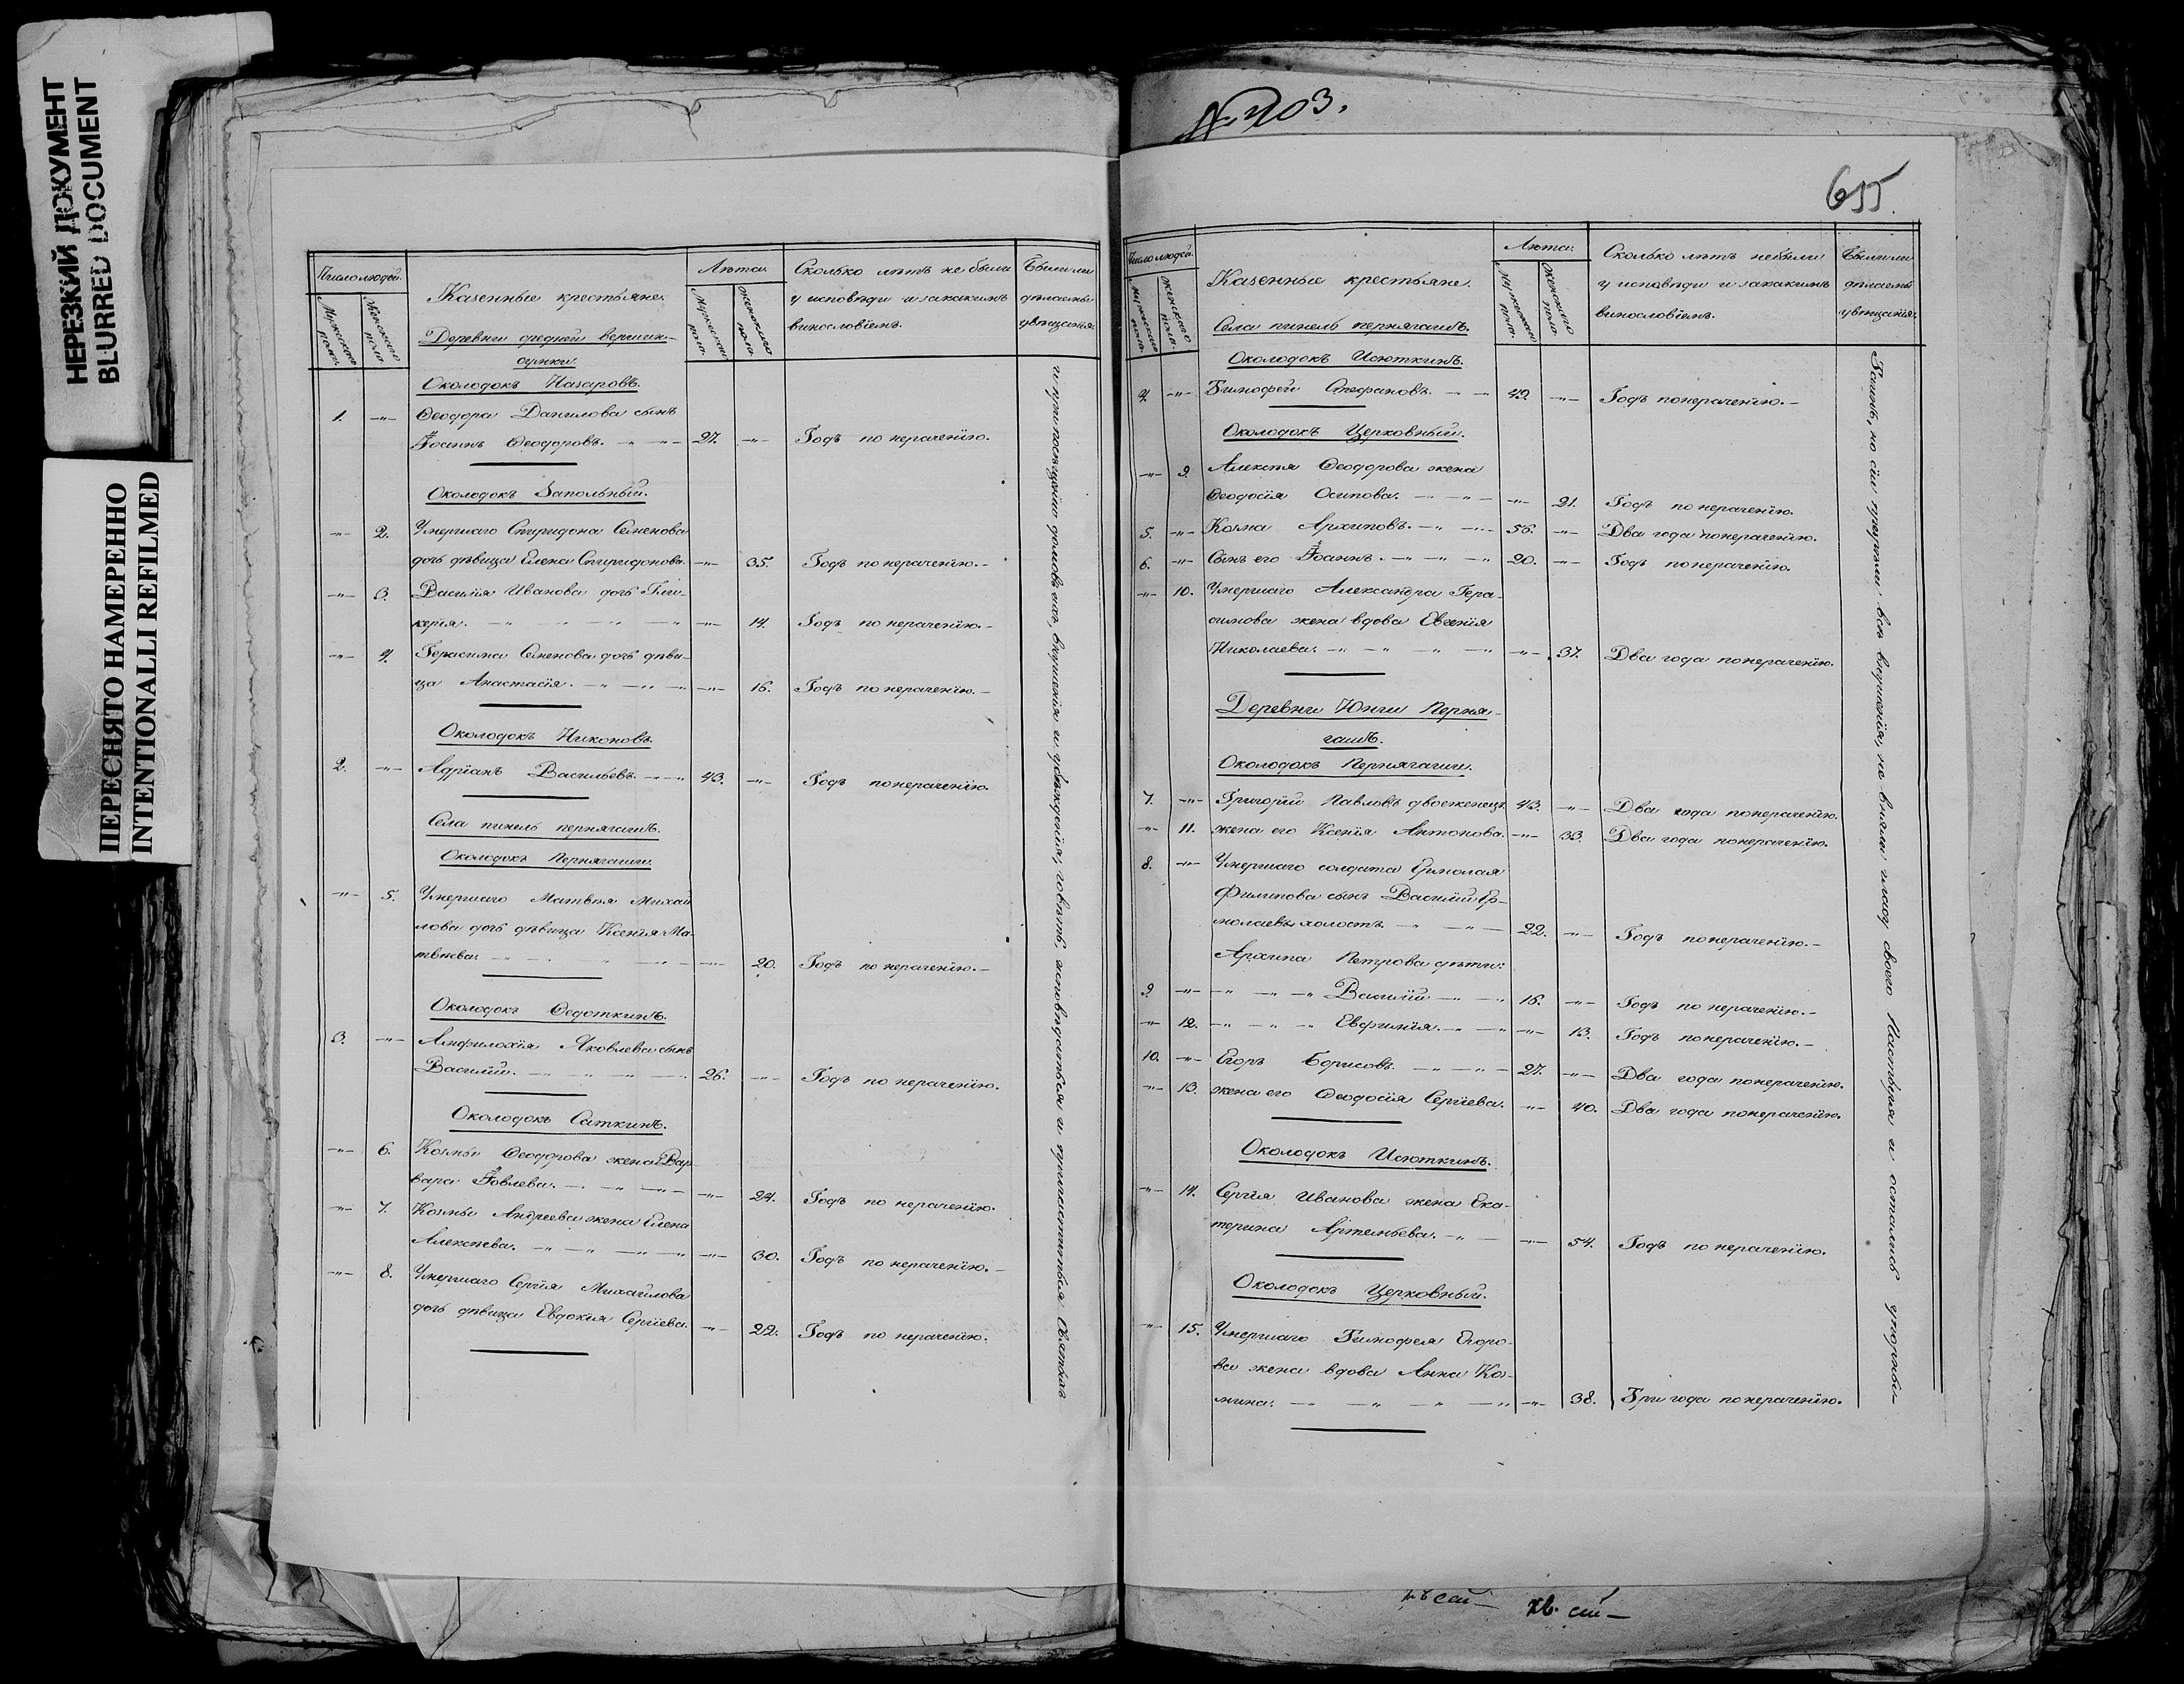 НЕРЕЗКИЙ ДОКУМЕНТ
BLURRED DOCUMENT
ПЕРЕСНЯТО НАМЕРЕННО
INTENTIONALLI REFILMED
Число людей.
Мужескаго пола.
Женскаго пола.
Казенные крестьяне.
Деревни средней вершин-
сумки.
Лѣта.
Мужескаго пола.
Женскаго пола.
Сколько лѣтъ не были
у исповѣди и за какимъ
винословіемъ.
Были ли
дѣлаемы
увѣщанія.
Околодокъ Назаровъ.
1. —"— Ѳеодора Данилова сынъ
Іоаннъ Ѳеодоровъ. —"— 27. —"— Годъ по нераченію.
Околодокъ Запольный.
—"— 2. Умершаго Спиридона Семенова
дочь дѣвица Елена Спиридонова. —"— 35. Годъ по нераченію.—
—"— 3. Василія Иванова дочь Гли-
керія. —"— 14. Годъ по нераченію.—
—"— 4. Герасима Семенова дочь дѣви-
ца Анастасія. —"— 16. Годъ по нераченію.—
Околодокъ Никоновъ.
2. —"— Адріанъ Васильевъ. —"— 43. —"— Годъ по нераченію.
Села пинель пернягашъ.
Околодокъ Пернягаши.
—"— 5. Умершаго Матвѣя Михай
лова дочь дѣвица Ксенія Ма-
твѣева. —"— 20. Годъ по нераченію.—
Околодокъ Ѳедоткинъ.
3. —"— Амфилохія Яковлева сынъ
Василій. —"— 26. —"— Годъ по нераченію.
Околодокъ Саткинъ.
—"— 6. Козмы Ѳеодорова жена Вар-
вара Іовлева. —"— 24. Годъ по нераченію.
—"— 7. Козмы Андреева жена Елена
Алексѣева. —"— 30. Годъ по нераченію.—
—"— 8. Умершаго Сергія Михайлова
дочь дѣвица Евдокія Сергіева. —"— 22. Годъ по нераченію.
и при посѣщеніи домовъ ихъ, внушенія и убѣжденія, говѣть, исповѣдаться и пріобщиться Святыхъ
№ 703.
655.
Число людей.
Мужескаго пола.
Женскаго пола.
Казенные крестьяне.
Села пинель пернягашъ.
Лѣта.
Мужескаго пола.
Женскаго пола.
Сколько лѣтъ небыли
у исповѣди и за какимъ
винословіемъ.
Были ли
дѣлаемы
увѣщанія.
Околодокъ Исюткинъ.
4. —"— Тимофей Стефановъ. — — 49. —"— Годъ по нераченію.—
Околодокъ Церковный.
—"— 9. Алексѣя Ѳеодорова жена
Ѳеодосія Осипова. —"— 21. Годъ по нераченію.
5. —"— Козма Архиповъ. —"— 56. —"— Два года по нераченію.
6. —"— Сынъ его Іоаннъ. —"— 20. —"— Годъ по нераченію.
—"— 10. Умершаго Александра Гера-
симова жена вдова Евгенія
Николаева. —"— 37. Два года по нераченію.
Деревни Юнги Перня-
гашъ.
Околодокъ Пернягаши.
7. —"— Григорій Павловъ двоеженецъ. 43. —"— Два года по нераченію.
—"— 11. жена его Ксенія Антонова. —"— 33. Два года по нераченію.
8. —"— Умершаго солдата Ермолая
Филипова сынъ Василій Ер-
молаевъ холостъ. —"— 22. —"— Годъ по нераченію.—
Архипа Петрова дѣти:
9. —"— Василій —"— 16. —"— Годъ по нераченію.—
—"— 12. —"— Евфимія. —"— 13. Годъ по нераченію.—
10. —"— Егоръ Борисовъ. —"— 27. —"— Два года по нераченію.
—"— 13. жена его Ѳеодосія Сергіева. —"— 40. Два года по нераченію.
Околодокъ Исюткинъ.
—"— 14. Сергія Иванова жена Ека-
терина Артемьева. —"— 54. Годъ по нераченію.
Околодокъ Церковный.
—"— 15. Умершаго Тимофея Егоро-
ва жена вдова Анна Коз-
мина. —"— 38. Три года по нераченію.
Таинъ, но сіи презрѣли всѣ внушенія, не вняли гласу своего Пастыря и остались упорны—